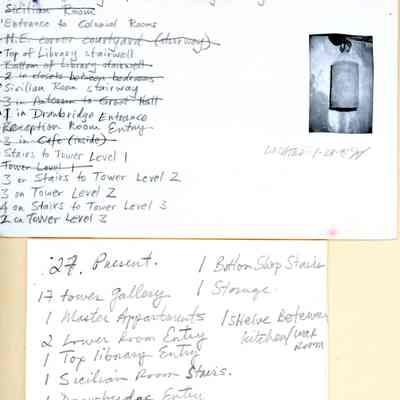 Sicilian Room
Entrance to Colonial Rooms
N.E. corner courtyard (stairway)
Top of Library stairwell
Bottom of Library stairwell
2 in closets between bedrooms
Sicilian Room stairway
3 in Anteroom to Great Hall
1 in Drawbridge Entrance
Reception Room Entry
3 in Cafe (inside)
Stairs to Tower Level 1
Tower Level 1
3 on Stairs to Tower Level 2
3 on Tower Level 2
4 on Stairs to Tower Level 3
2 on Tower Level 3
27. Present.
17 tower gallery
1 Master Appartments
2 Lower Room Entry
1 Top library Entry
1 Sicilian Room Stairs.
1 Drawbridge Entry
1 Bottom Shop Stairs
1 Storage.
1 Shelve Between
kitchen/wax
Room